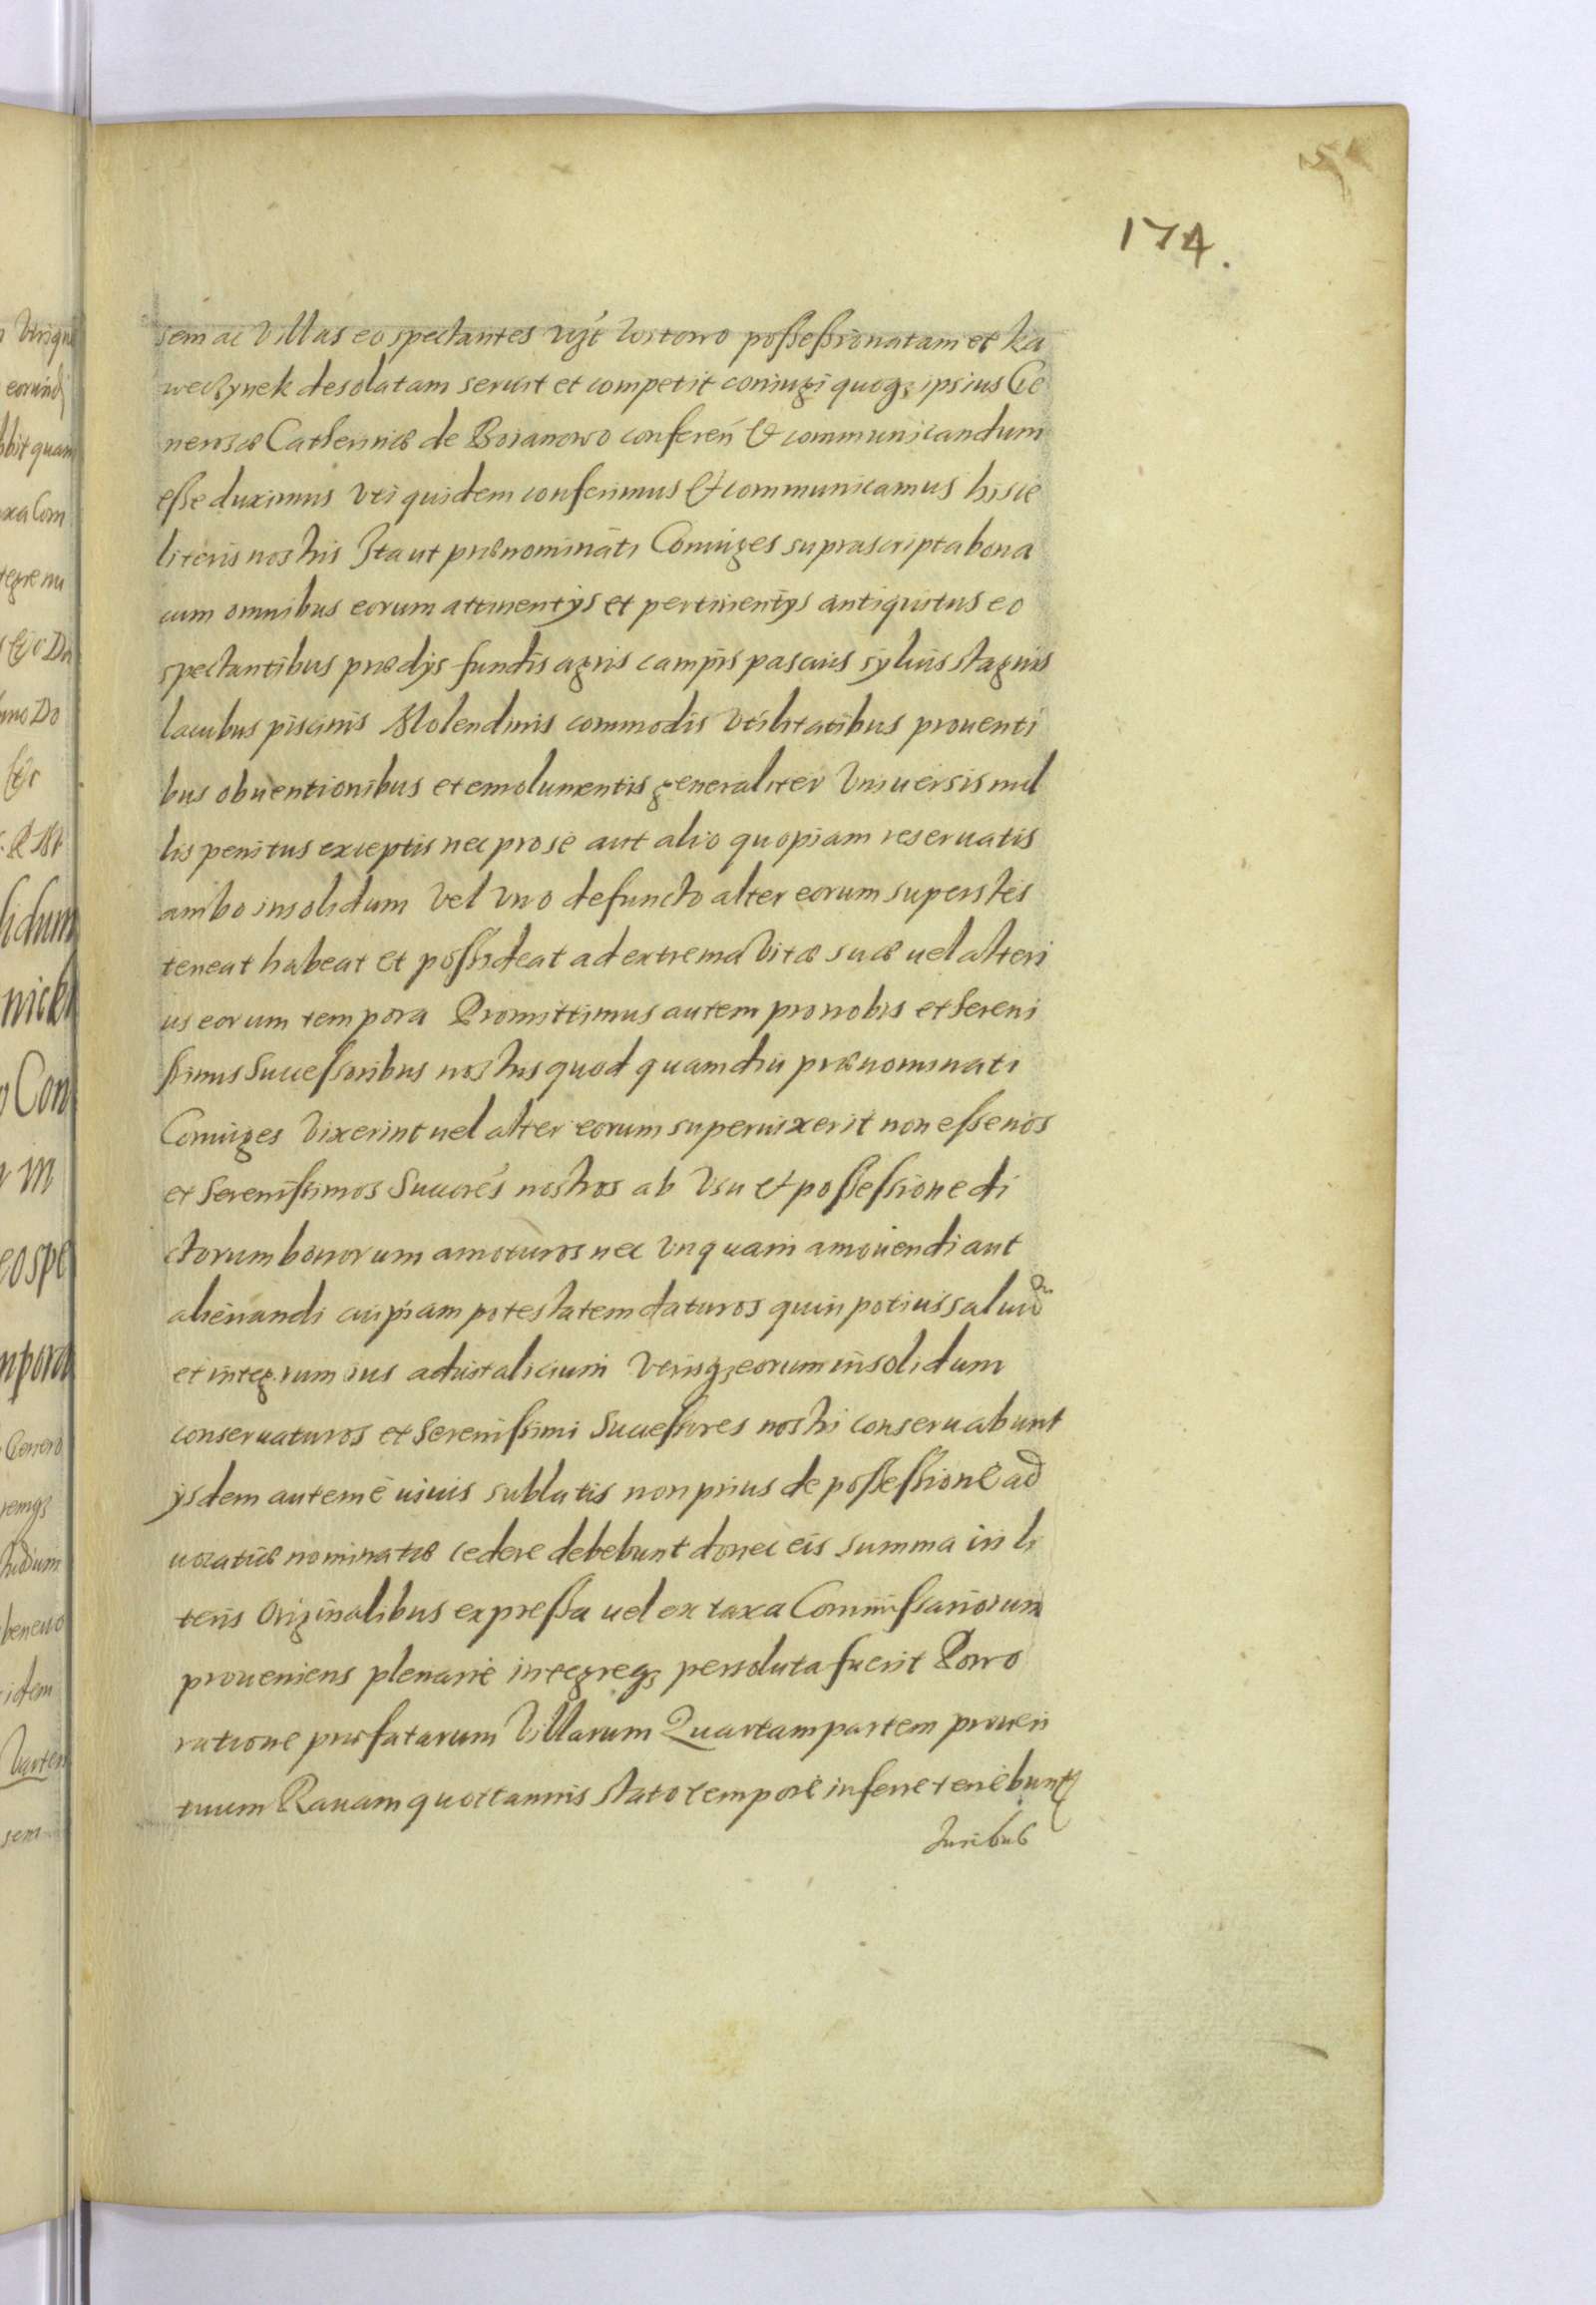 174.
sem ac Villas eo spectantes vĳt Wistowo possessionatam et Ka
weczynek desolatam seruit et competit coniugi quoqȝ ipsius Ge
nerosæ Catherinæ de Boianowo conferen̄ & communicandum
esse duximus Vti quidem conferimus & communicamus hisce
literis nostris Ita ut prænominati Coniuges suprascripta bona
cum omnibus eorum attinentĳs et pertinentĳs antiquitus eo
spectantibus prædĳs fundis agris campis pascuis syluis stagnis
lacubus piscinis Molendinis commodis Vtilitatibus prouenti
bus obuentionibus et emolumentis generaliter Vniuersis nul
lis penitus exceptis nec pro se aut alio quopiam reseruatis
ambo insolidum Vel Vno defuncto alter eorum superstes
teneat habeat et possideat ad extrema Vitæ suæ uel alteri
us eorum tempora Promittimus autem pro nobis et Sereni
ssimis Successoribus nostris quod quamdiu prænominati
Coniuges Vixerint uel alter eorum superuixerit non esse nos
et Serenissimos Succres nostros ab Vsu & possessione di
ctorum bonorum amoturos nec Vnquam amouendi aut
alienandi cuipiam potestatem daturos quin potius saluū
et integrum ius aduitalicium Vtriusqȝ eorum insolidum
conseruaturos et Serenissimi Successores nostri conseruabunt
ysdem autem è uiuis sublatis non prius de possessione ad
uocatiæ nominatæ cedere debebunt donec eis summa in li
teris Originalibus expressa uel ex taxa Commissariorum
proueniens plenarie integreqȝ persoluta fuerit Porro
ratione præfatarum Villarum Quartam partem prouen
tuum Rauam quottannis stato tempore inferre tenebuntꝫ
Iuribus